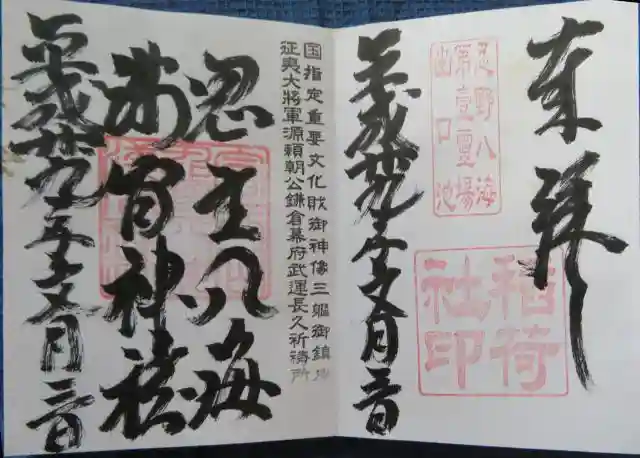 奉拝
忍野八海
第壹霊場
出口池
稲荷
社印
平成廿九年文月三日
国指定重要文化財御神像三軀御鎮
征夷大將軍源頼朝公鎌倉幕府武運長久祈禱所
忍野八海
浅間神社
平成廿九年文月三日